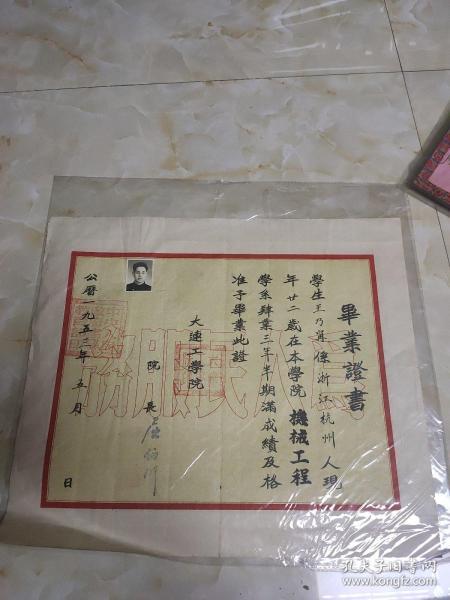 畢業證書
學生王乃
係浙江杭州人現
年廿二歲在本學院機械工程
學系肄業三年半期滿成績及格
准予畢業此證
大連工學院
院長
公曆一九五三年五月 日
為人民服務
孔夫子旧书网
www.kongfz.com